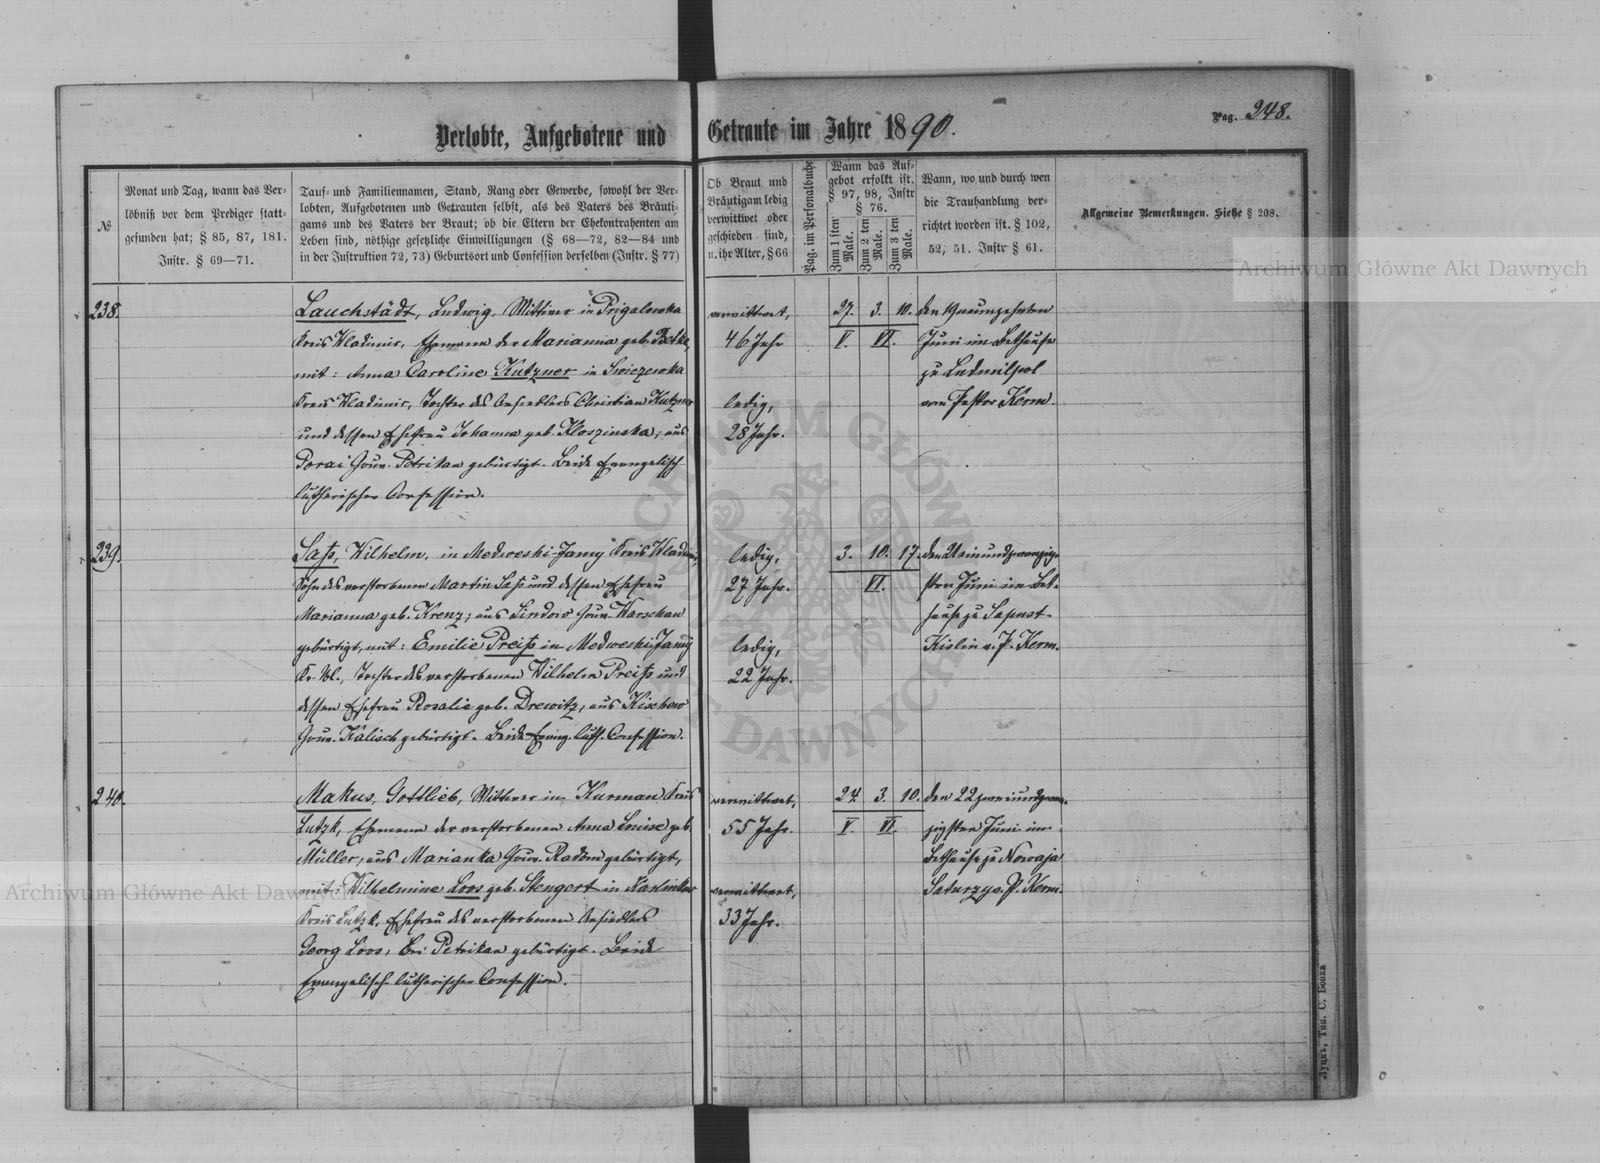 Pag. 248.
Verlobte, Aufgebotene und Getraute im Jahre 1890.
№
Monat und Tag, wann das Ver-
löbniß vor dem Prediger statt-
gefunden hat; § 85, 87, 181.
Instr. § 69—71.
Tauf- und Familiennamen, Stand, Rang oder Gewerbe, sowohl der Ver-
lobten, Aufgebotenen und Getrauten selbst, als des Vaters des Bräuti-
gams und des Vaters der Braut; ob die Eltern der Ehekontrahenten am
Leben sind, nöthige gesetzliche Einwilligungen (§ 68—72, 82—84 und
in der Instruktion 72, 73) Geburtsort und Confession derselben (Instr. § 77)
Ob Braut und
Bräutigam ledig
verwittwet oder
geschieden sind,
u. ihr Alter, § 66
Pag. im Personalbuche
Wann das Auf-
gebot erfolkt ist.
§ 97, 98, Instr
§ 76.
Zum 1 sten Male.
Zum 2 ten Male.
Zum 3 ten Male.
Wann, wo und durch wen
die Trauhandlung ver-
richtet worden ist. § 102,
52, 51. Instr § 61.
Allgemeine Bemerkungen. Siehe § 208.
238.
Lauchstädt, Ludwig, Wittwer in Prigalowka
Kreis Wladimir, Ehemann der Marianna geb. Betke,
mit: Anna Caroline Kutzner in Swiczewka
Kreis Wladimir, Tochter des Ansiedlers Christian Kutzner
und dessen Ehefrau Johanna geb. Kloszinska; aus
Porai Gouv. Petrikau gebürtigt. Beide Evangelisch
lutherischer Confession.
verwittwet,
46 Jahr
ledig,
28 Jahr.
27. 3. 10.
V. VI.
den 19 neunzehnten
Juni im Bethause
zu Ludmilpol
vom Pastor Kerm.
239.
Saß, Wilhelm, in Medweski-Jamy Kreis Wladimir,
Sohn des verstorbenen Martin Saß und dessen Ehefrau
Marianna geb. Krenz; aus Sindow Gouv. Warschau
gebürtigt, mit: Emilie Preiß in Medweski-Jamy
Kr. Wl., Tochter des verstorbenen Wilhelm Preiß und
dessen Ehefrau Rosalie geb. Drewitz, aus Kischewo
Gouv. Kalisch gebürtigt. Beide Evang. luth. Confession.
ledig,
27 Jahr.
ledig,
22 Jahr.
3. 10. 17.
VI.
den 21 einundzwanzig-
sten Juni im Bet-
hause zu Sapust-
Kislin v. P. Kerm.
240.
Makus, Gottlieb, Wittwer in Kurman Kreis
Lutzk, Ehemann der verstorbenen Anna Louise geb.
Müller, aus Marianka Gouv. Radom gebürtigt,
mit: Wilhelmine Loos geb. Stengert in Karlinkow
Kreis Lutzk, Ehefrau des verstorbenen Ansiedlers
Georg Loos, bei Petrikau gebürtigt. Beide
Evangelisch lutherischer Confession.
verwittwet,
55 Jahr.
verwittwet,
33 Jahr.
27. 3. 10.
V. VI.
den 22 zweiundzwan-
zigsten Juni im
Bethause zu Nowaja
Saturzy v. P. Kerm.
Archiwum Główne Akt Dawnych
Archiwum Główne Akt Dawnych
ARCHIWUM GŁÓWNE AKT DAWNYCH
Луцкъ, Тип. С. Бокка